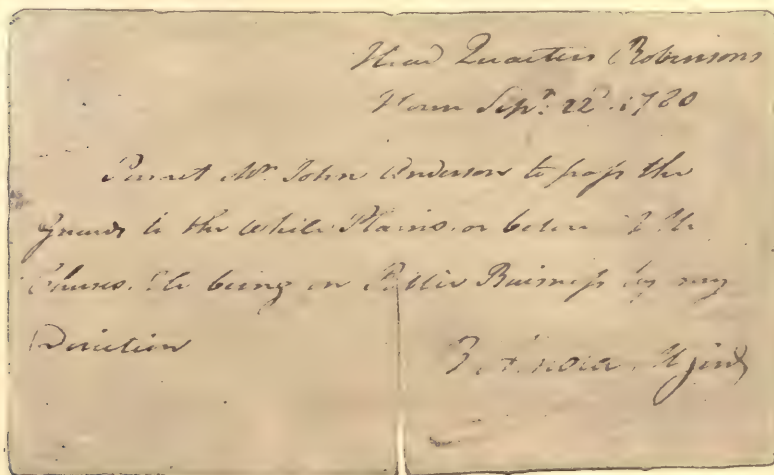 Head Quarters Robinsons
House Sepr. 22d. 1780
Permit Mr. John Anderson to pass the
Guards to the White Plains, or below if He
Chuses. He being on Public Buisness by my
Direction
B. Arnold M Genl